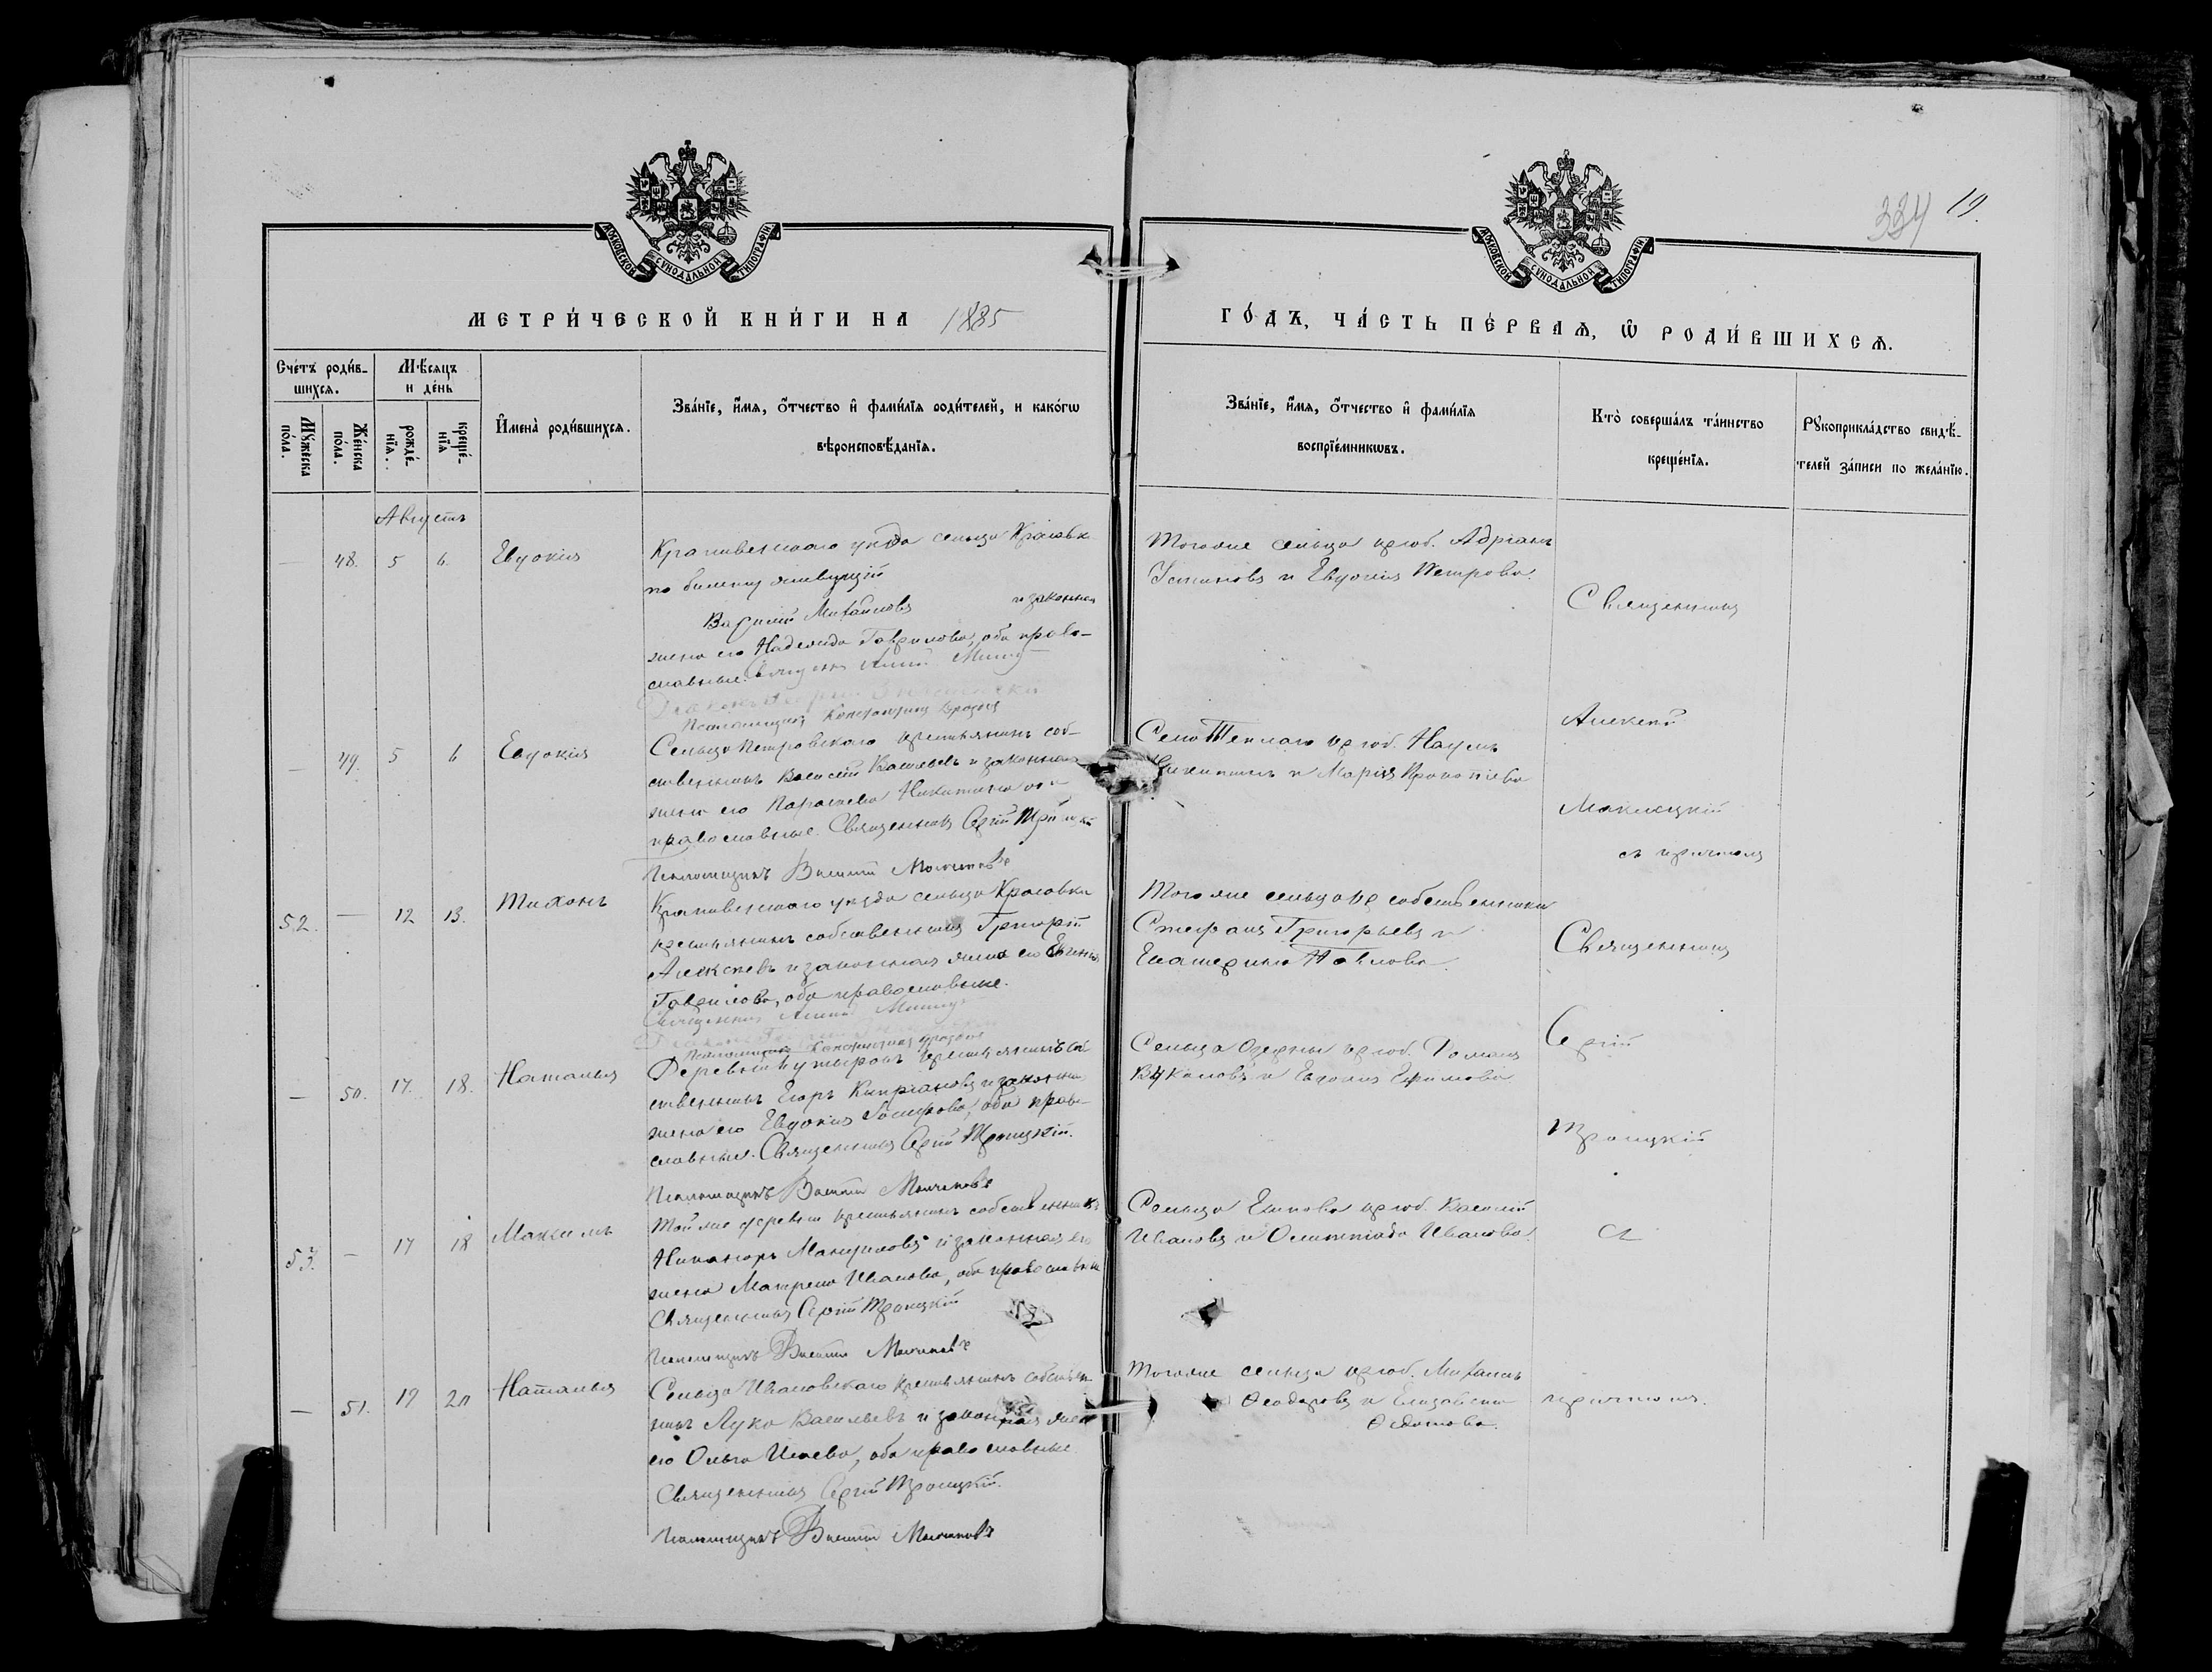 334 19.
МОСКОВСКОЙ СѴНОДАЛЬНОЙ ТИПОГРАФІИ
МОСКОВСКОЙ СѴНОДАЛЬНОЙ ТИПОГРАФІИ
МЕТРИ́ЧЕСКОЙ КНИ́ГИ НА 1885
ГО́ДЪ, ЧА́СТЬ ПЕ́РВАѦ, Ѡ҆ РОДИ́ВШИХСѦ.
Сче́тъ роди́в-
шихсѧ.
Мꙋ́жеска по́ла.
Же́нска по́ла.
Мѣ́сѧцъ
и де́нь
рожде́-нїѧ.
креще́-нїѧ
И҆мена̀ роди́вшихсѧ.
Зва́нїе, и҆́мѧ, ѻ҆́тчество и҆ фами́лїѧ роди́телей, и како́гѡ
вѣроисповѣ́данїѧ.
Зва́нїе, и҆́мѧ, ѻ҆́тчество и҆ фами́лїѧ
воспрїе́мникѡвъ.
Кто̀ соверша́лъ та́инство
креще́нїѧ.
Рꙋкоприкла́дство свидѣ́-
телей за́писи по жела́нїю.
Августъ
— 48. 5 6. Евдокія
Крапивенскаго уѣзда сельца Красовки
по билету живущій
Василій Михайловъ и законная
жена его Надежда Гаврилова, оба право-
славные. Священ Алексій
Псаломщикъ Константинъ
Тогоже сельца крест. Адріанъ
Устиновъ и Евдокія Петрова.
Священникъ
Алексій
Маклецкій
съ причтомъ
— 49. 5 6 Евдокія
Сельца Петровскаго крестьянинъ соб-
ственникъ Василій Васильевъ и законная
жена его Параскева Никитина оба
православные. Священникъ Сергій Троицкій
Псаломщикъ Василій Молчановъ
Села Теплаго крест. Наумъ
Никитинъ и Марія Прокопіева
52. — 12 13. Тихонъ
Крапивенскаго уѣзда сельца Красовки
крестьянинъ собственникъ Григорій
Алексѣевъ и законная жена его Евгенія
Гаврилова, оба православные.
Священникъ Алексій
Псаломщикъ Константинъ
Тогоже сельца кр собственники
Стефанъ Григорьевъ и
Екатерина Павлова
Священникъ
Сергій
Троицкій
съ
причтомъ.
— 50. 17. 18. Наталья
Деревни крестьянинъ соб-
ственникъ Егоръ Кипріановъ и законная
жена его Евдокія Іосифова, оба право-
славные. Священникъ Сергій Троицкій.
Псаломщикъ Василій Молчановъ
Сельца Озерны крест. Романъ
Вуколовъ и Евдокія Ефимова
53. — 17 18 Максимъ
Той же деревни крестьянинъ собственникъ
Никаноръ Мануиловъ и законная его
жена Матрена Иванова, оба православные
Священникъ Сергій Троицкій
Псаломщикъ Василій Молчановъ
Сельца крест. Василій
Ивановъ и Олимпіада Иванова.
— 51. 19 20 Наталья
Сельца Ивановскаго крестьянинъ собствен-
никъ Лука Васильевъ и законная жена
его Ольга Исаева, оба православные
Священникъ Сергій Троицкій.
Псаломщикъ Василій Молчановъ
Тогоже сельца крест. Михаилъ
Ѳеодоровъ и Елизавета
Ѳедотова.